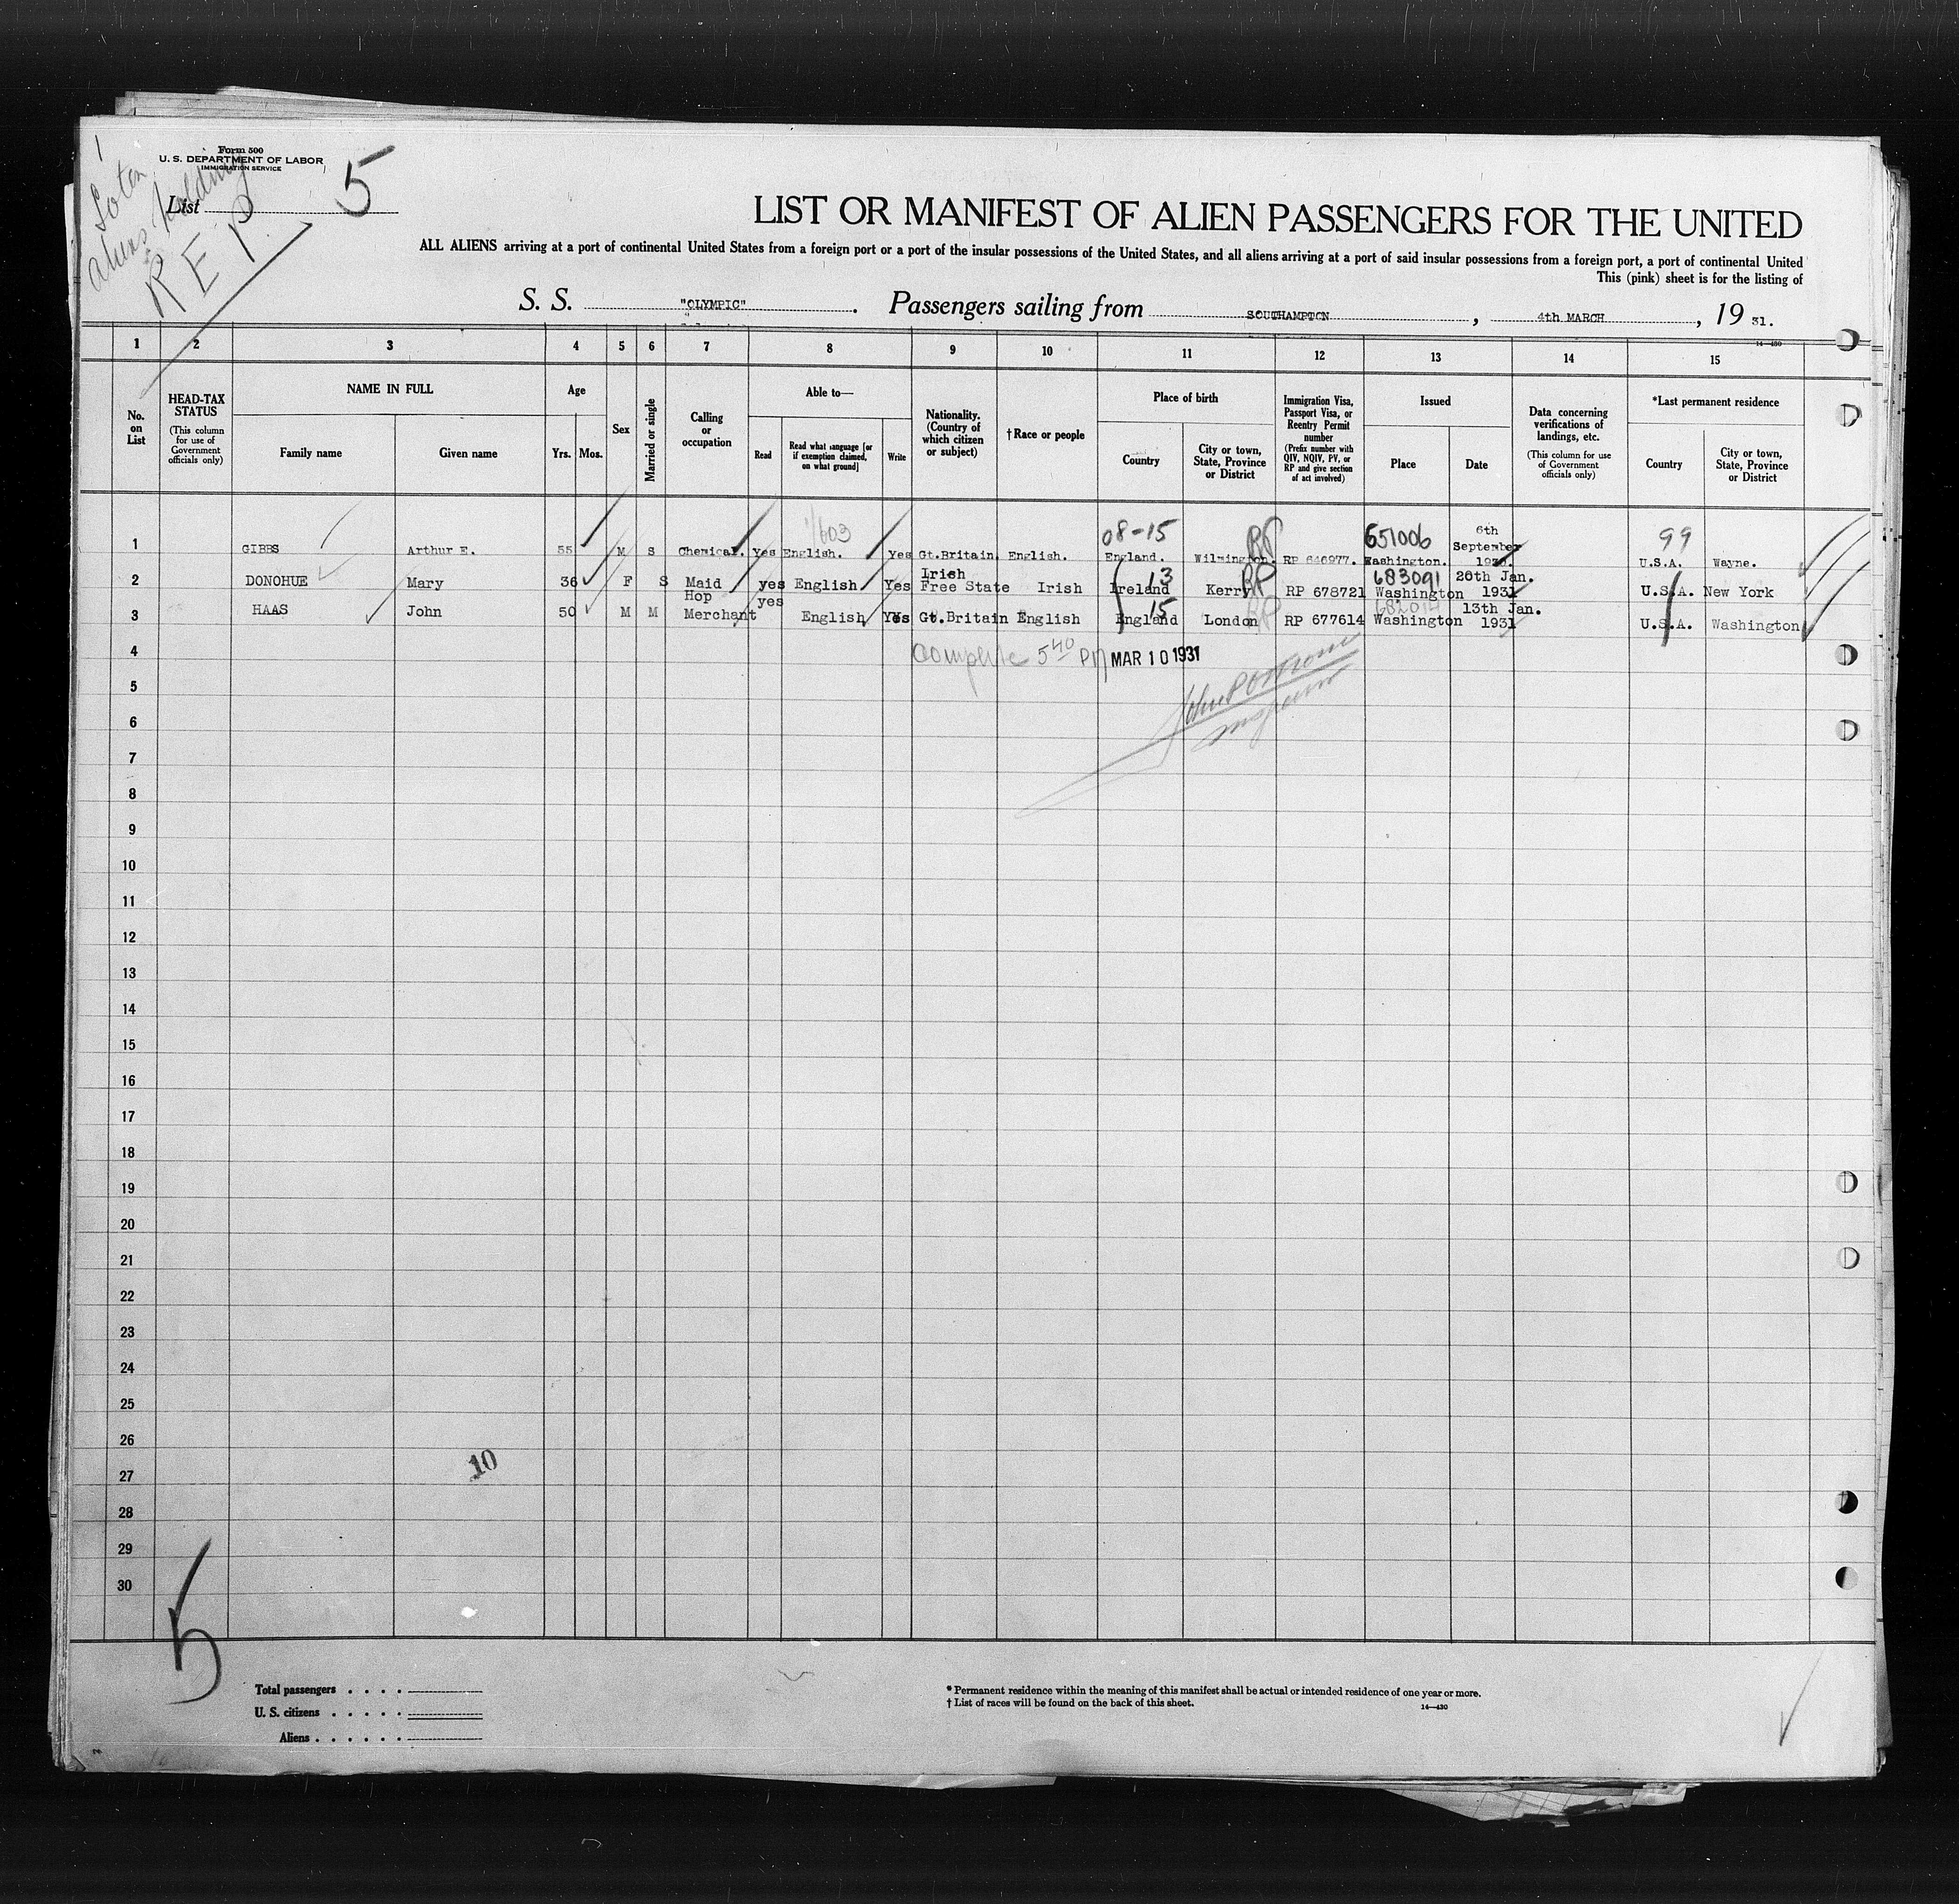 1
Form 500
U. S. DEPARTMENT OF LABOR
IMMIGRATION SERVICE
Soton
aliens holding
R E P
List
5
LIST OR MANIFEST OF ALIEN PASSENGERS FOR THE UNITED
ALL ALIENS arriving at a port of continental United States from a foreign port or a port of the insular possessions of the United States, and all aliens arriving at a port of said insular possessions from a foreign port, a port of continental United
This (pink) sheet is for the listing of
S. S. "OLYMPIC". Passengers sailing from SOUTHAMPTON, 4th MARCH, 19 31.
14—430
1 2 3 4 5 6 7 8 9 10 11 12 13 14 15
No. on List
HEAD-TAX STATUS (This column for use of Government officials only)
NAME IN FULL
Family name
Given name
Age
Yrs. Mos.
Sex
Married or single
Calling or occupation
Able to—
Read
Read what language [or if exemption claimed, on what ground]
Write
Nationality. (Country of which citizen or subject)
† Race or people
Place of birth
Country
City or town, State, Province or District
Immigration Visa, Passport Visa, or Reentry Permit number (Prefix number with QIV, NQIV, PV, or RP and give section of act involved)
Issued
Place
Date
Data concerning verifications of landings, etc. (This column for use of Government officials only)
*Last permanent residence
Country
City or town, State, Province or District
603 08-15 RP 651006 99
1 GIBBS Arthur E. 55 M S Chemical. Yes English. Yes Gt.Britain. English. England. Wilmington. RP 646977. Washington. 6th September 1930. U.S.A. Wayne.
13 RP 683091
2 DONOHUE Mary 36 F S Maid yes English Yes Irish Free State Irish Ireland Kerry RP 678721 Washington 20th Jan. 1931 U.S.A. New York
15 RP 682014
3 HAAS John 50 M M Hop Merchant yes English Yes Gt.Britain English England London RP 677614 Washington 13th Jan. 1931 U.S.A. Washington
4 Complete 5 40 PM MAR 10 1931
5
6
7
8
9
10
11
12
13
14
15
16
17
18
19
20
21
22
23
24
25
26
10
27
28
29
30
5
Total passengers . . . .
U. S. citizens . . . . .
Aliens . . . . . .
* Permanent residence within the meaning of this manifest shall be actual or intended residence of one year or more.
† List of races will be found on the back of this sheet.
14—430